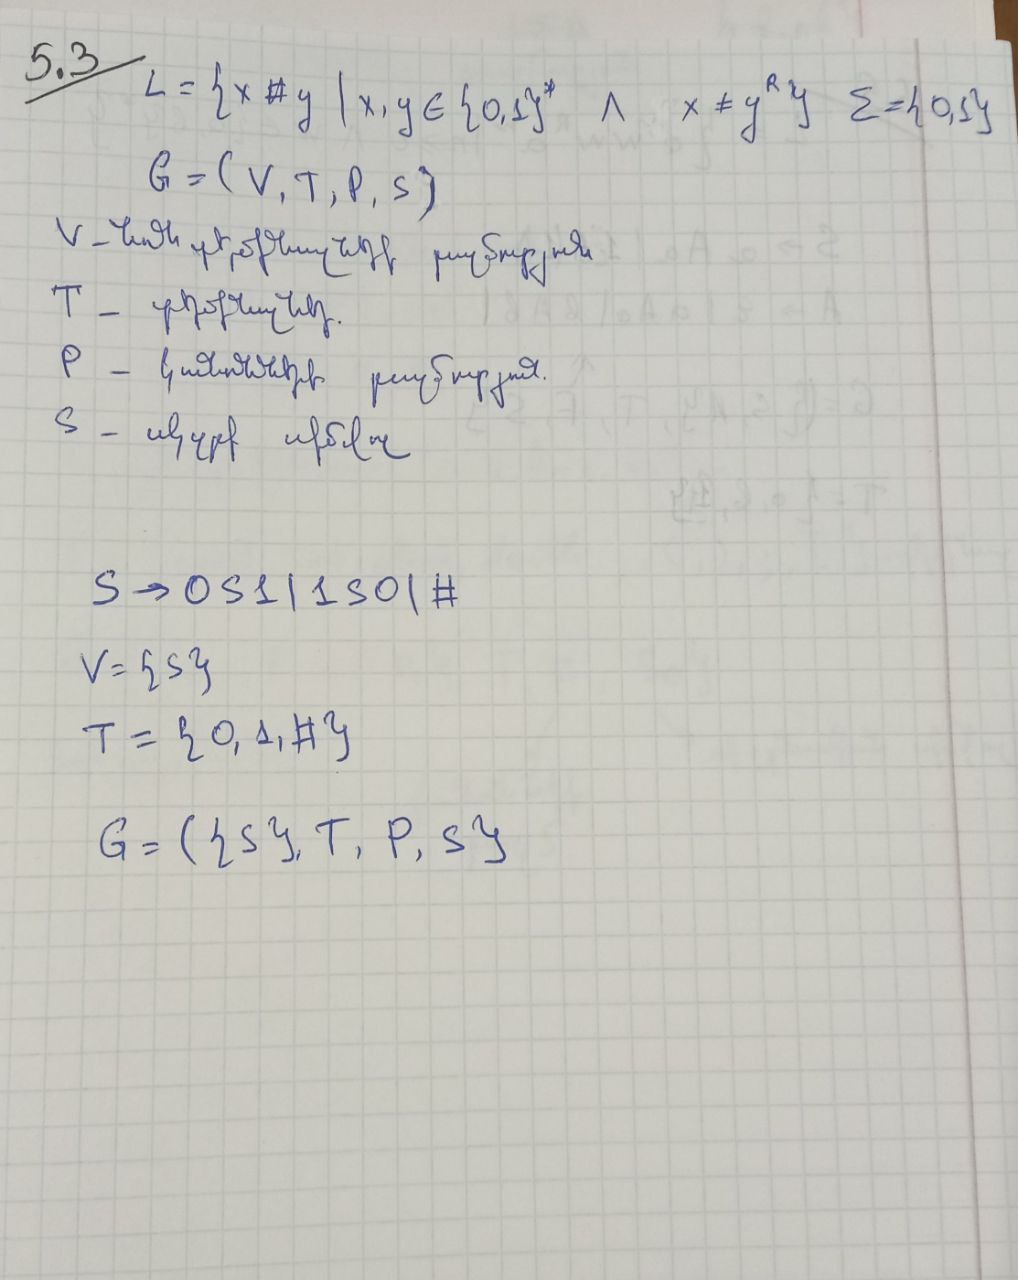 5.3
L = {x # y | x, y ∈ {0,1}* ∧ x ≠ y^R} Σ = {0,1}
G = (V, T, P, S)
V - ոչ տերմինալների բազմություն
T - տերմինալներ.
P - կանոնների բազմություն.
S - սկզբի սիմվոլ
S → 0S1 | 1S0 | #
V = {S}
T = {0, 1, #}
G = ({S}, T, P, S}